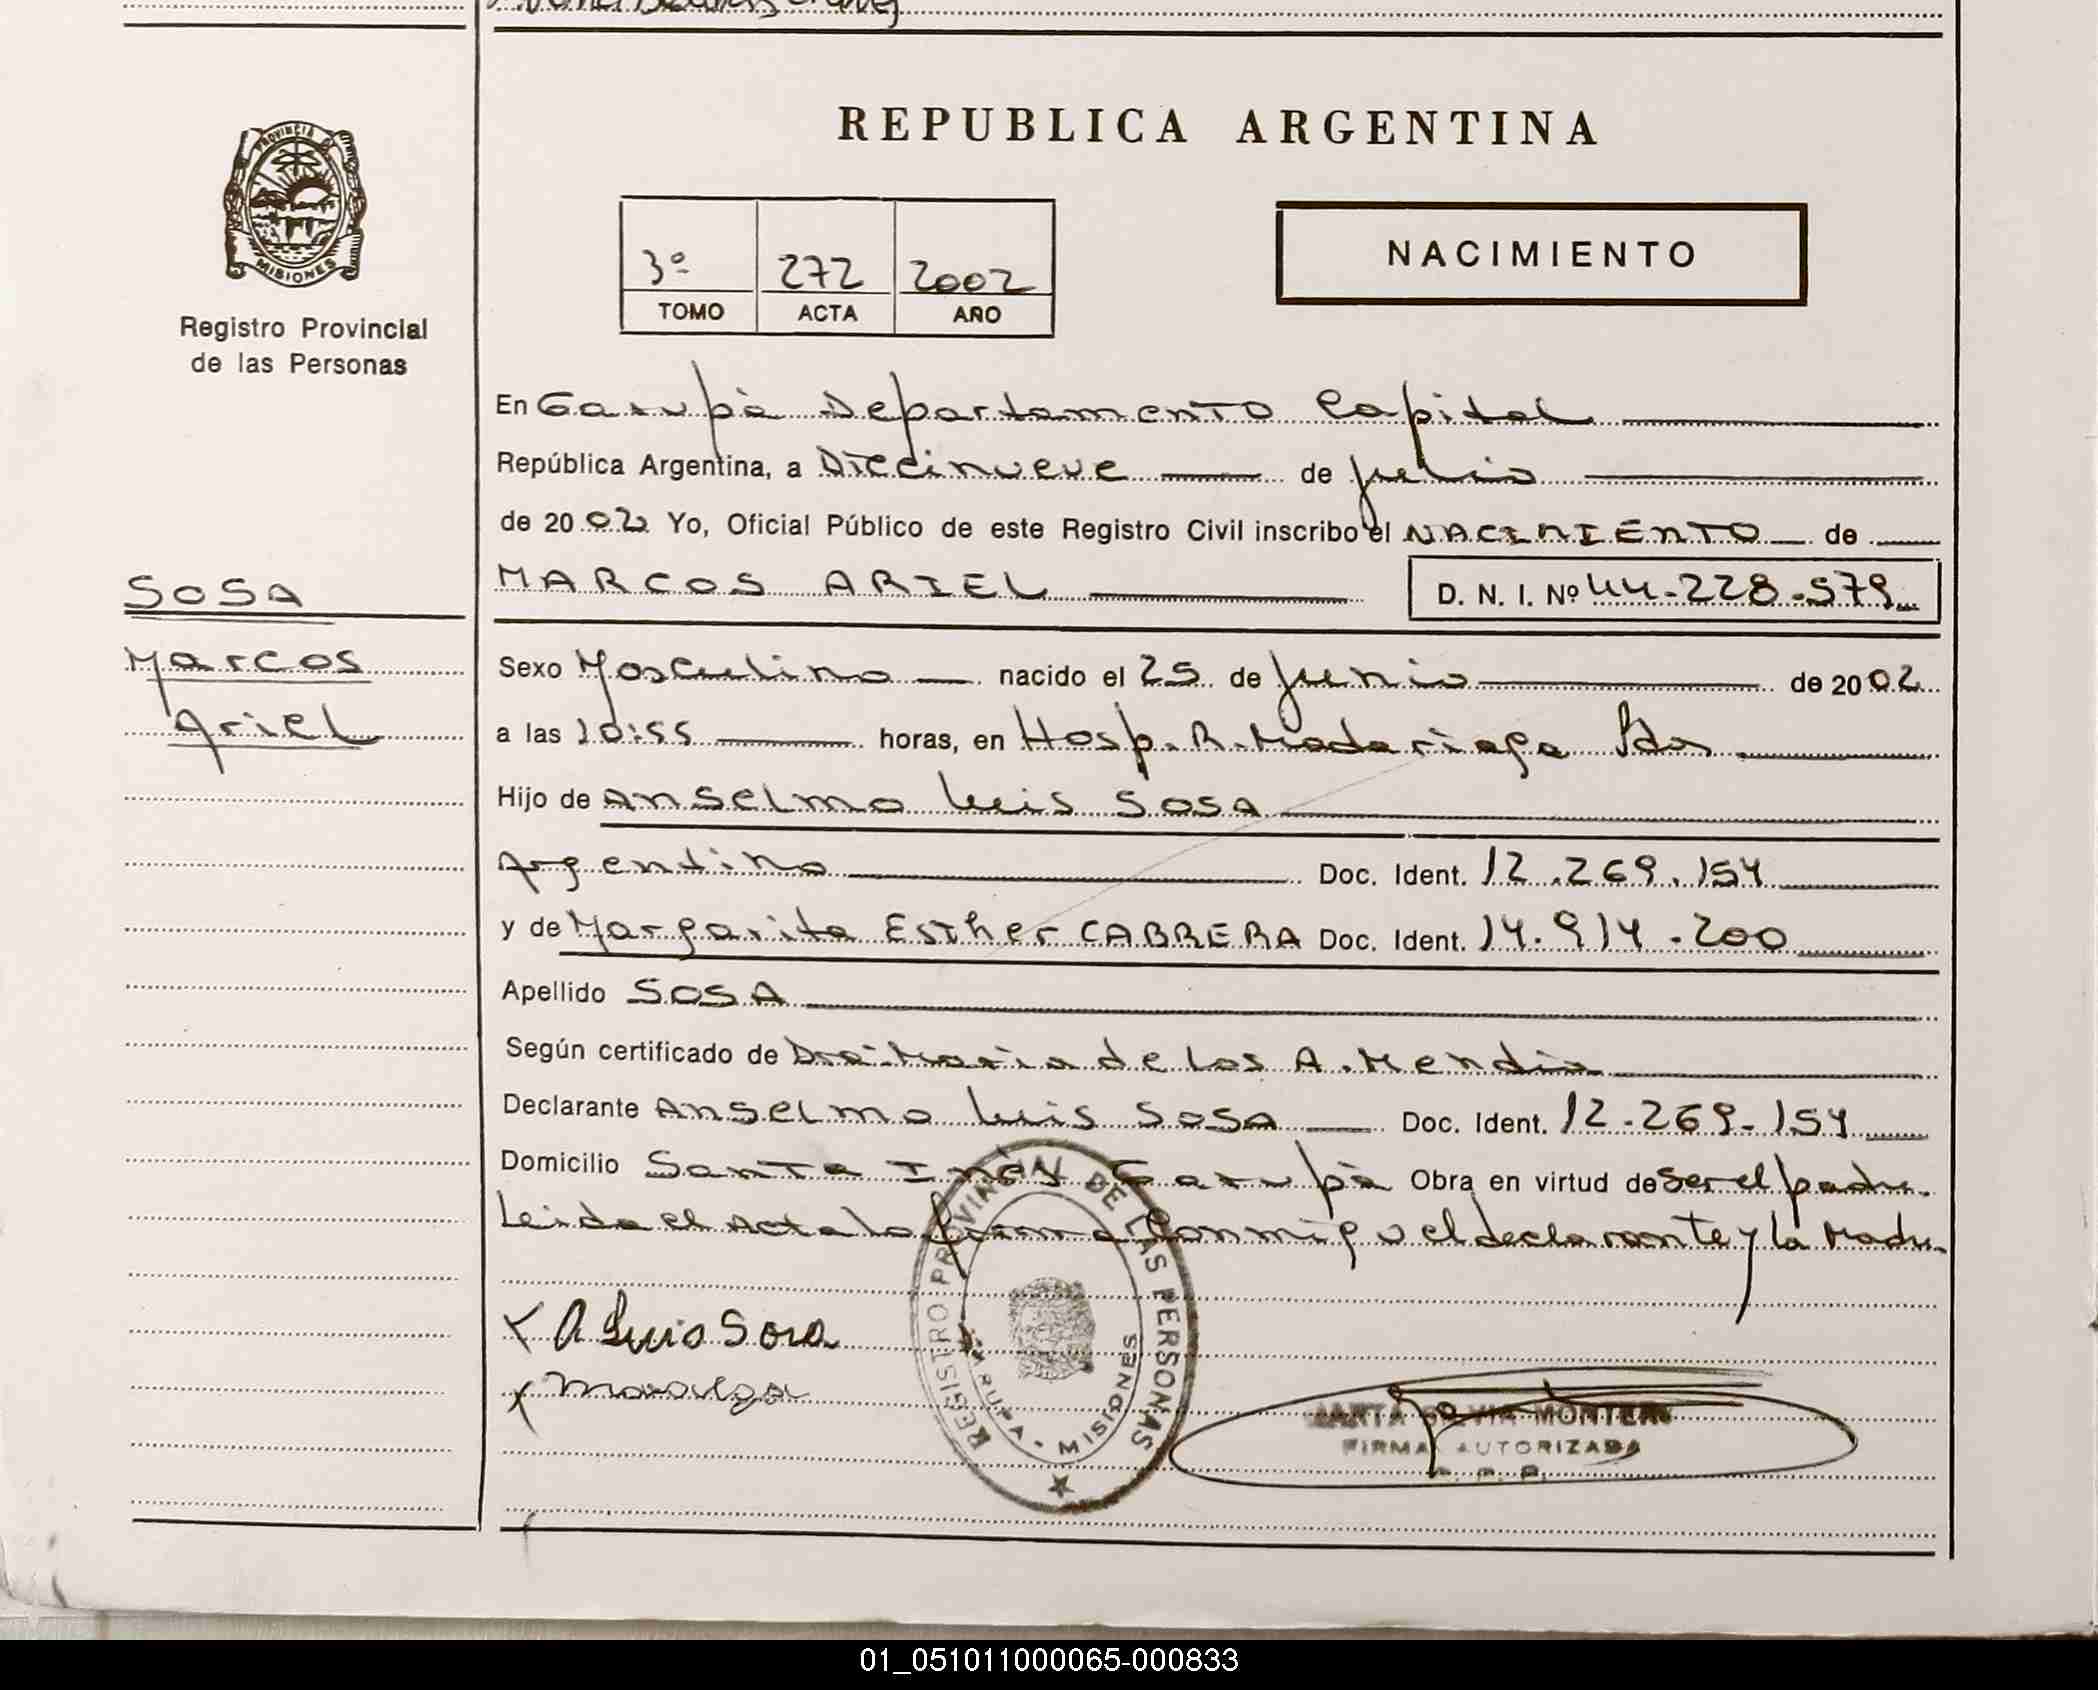 REPUBLICA ARGENTINA
PROVINCIA
MISIONES
Registro Provincial
de las Personas
3º 272 2002
TOMO ACTA AÑO
NACIMIENTO
En Garupà Departamento Capital
República Argentina, a Diecinueve de Julio
de 2002 Yo, Oficial Público de este Registro Civil inscribo el NACIMIENTO de
SOSA
Marcos
Ariel
MARCOS ARIEL D. N. I. Nº 44-228-579
Sexo Masculino nacido el 25 de Junio de 2002
a las 10:55 horas, en Hosp. R. Madariaga Pdas.
Hijo de Anselmo Luis SOSA
Argentino Doc. Ident. 12.269.154
y de Margarita Esther CABRERA Doc. Ident. 14.914.200
Apellido SOSA
Según certificado de Dra. Maria de los A. Mendia
Declarante Anselmo Luis SOSA Doc. Ident. 12-269-154
Domicilio Santa Inés Garupà Obra en virtud de Ser el padre.
Leida el Acta la firma Conmigo el declarante y la Madre.
A Luis Sosa
REGISTRO PROVINCIAL DE LAS PERSONAS
GARUPA - MISIONES
MARTA SILVIA MONTERO
FIRMA AUTORIZADA
R. P. P.
01_051011000065-000833